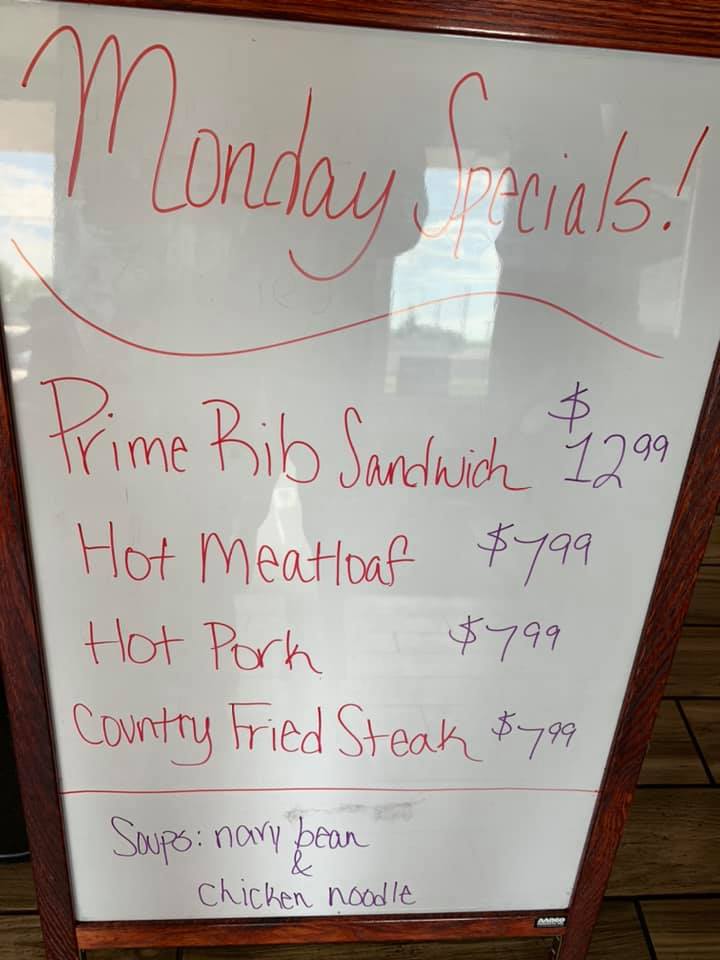 Monday Specials!
Prime Rib Sandwich $12.99
Hot Meatloaf $7.99
Hot Pork $7.99
Country Fried Steak $7.99
Soups: navy bean
&
chicken noodle